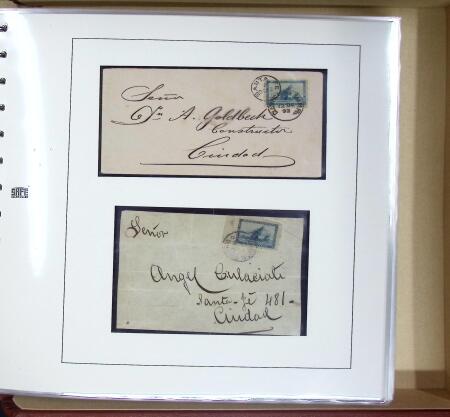 Señor
Dn A. Goldbeck
Constructor
Ciudad
SAFE
Señor
Angel
Santa-Fé 481-
Ciudad